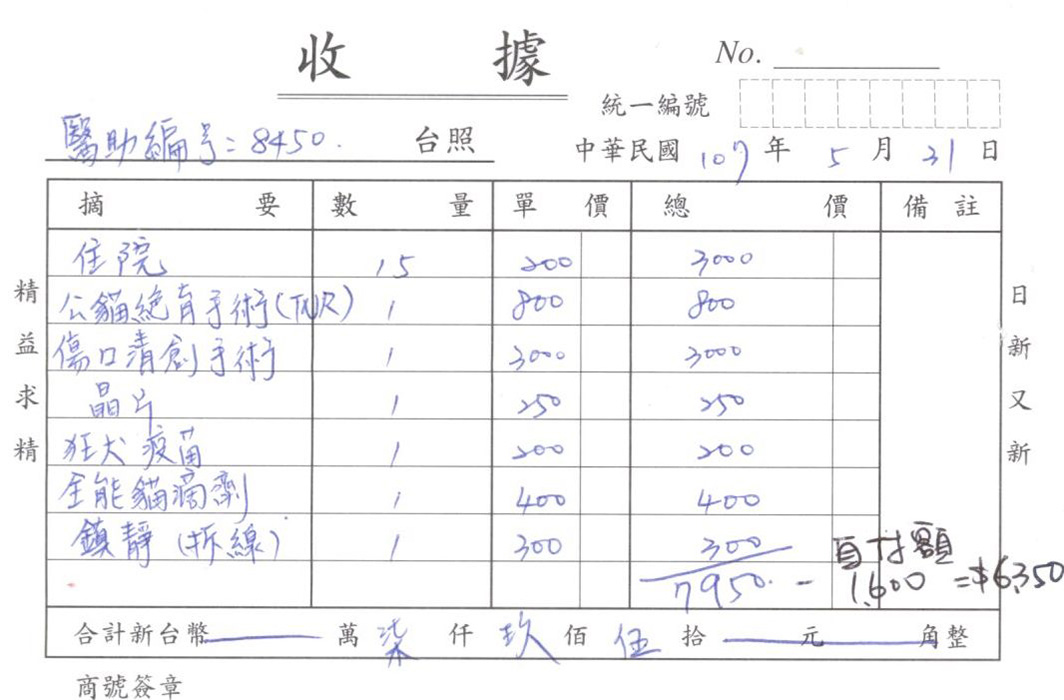 收據
No.
統一編號
醫助編号：8450. 台照
中華民國 107 年 5 月 31 日
摘要 數量 單價 總價 備註
住院 15 200 3000
公貓絕育手術(TNR) 1 800 800
傷口清創手術 1 3000 3000
晶片 1 250 250
狂犬疫苗 1 200 200
全能貓滴劑 1 400 400
鎮靜(拆線) 1 300 300
自付額
7950. - 1,600 = $6350
合計新台幣 萬 柒 仟 玖 佰 伍 拾 元 角整
商號簽章
精益求精
日新又新